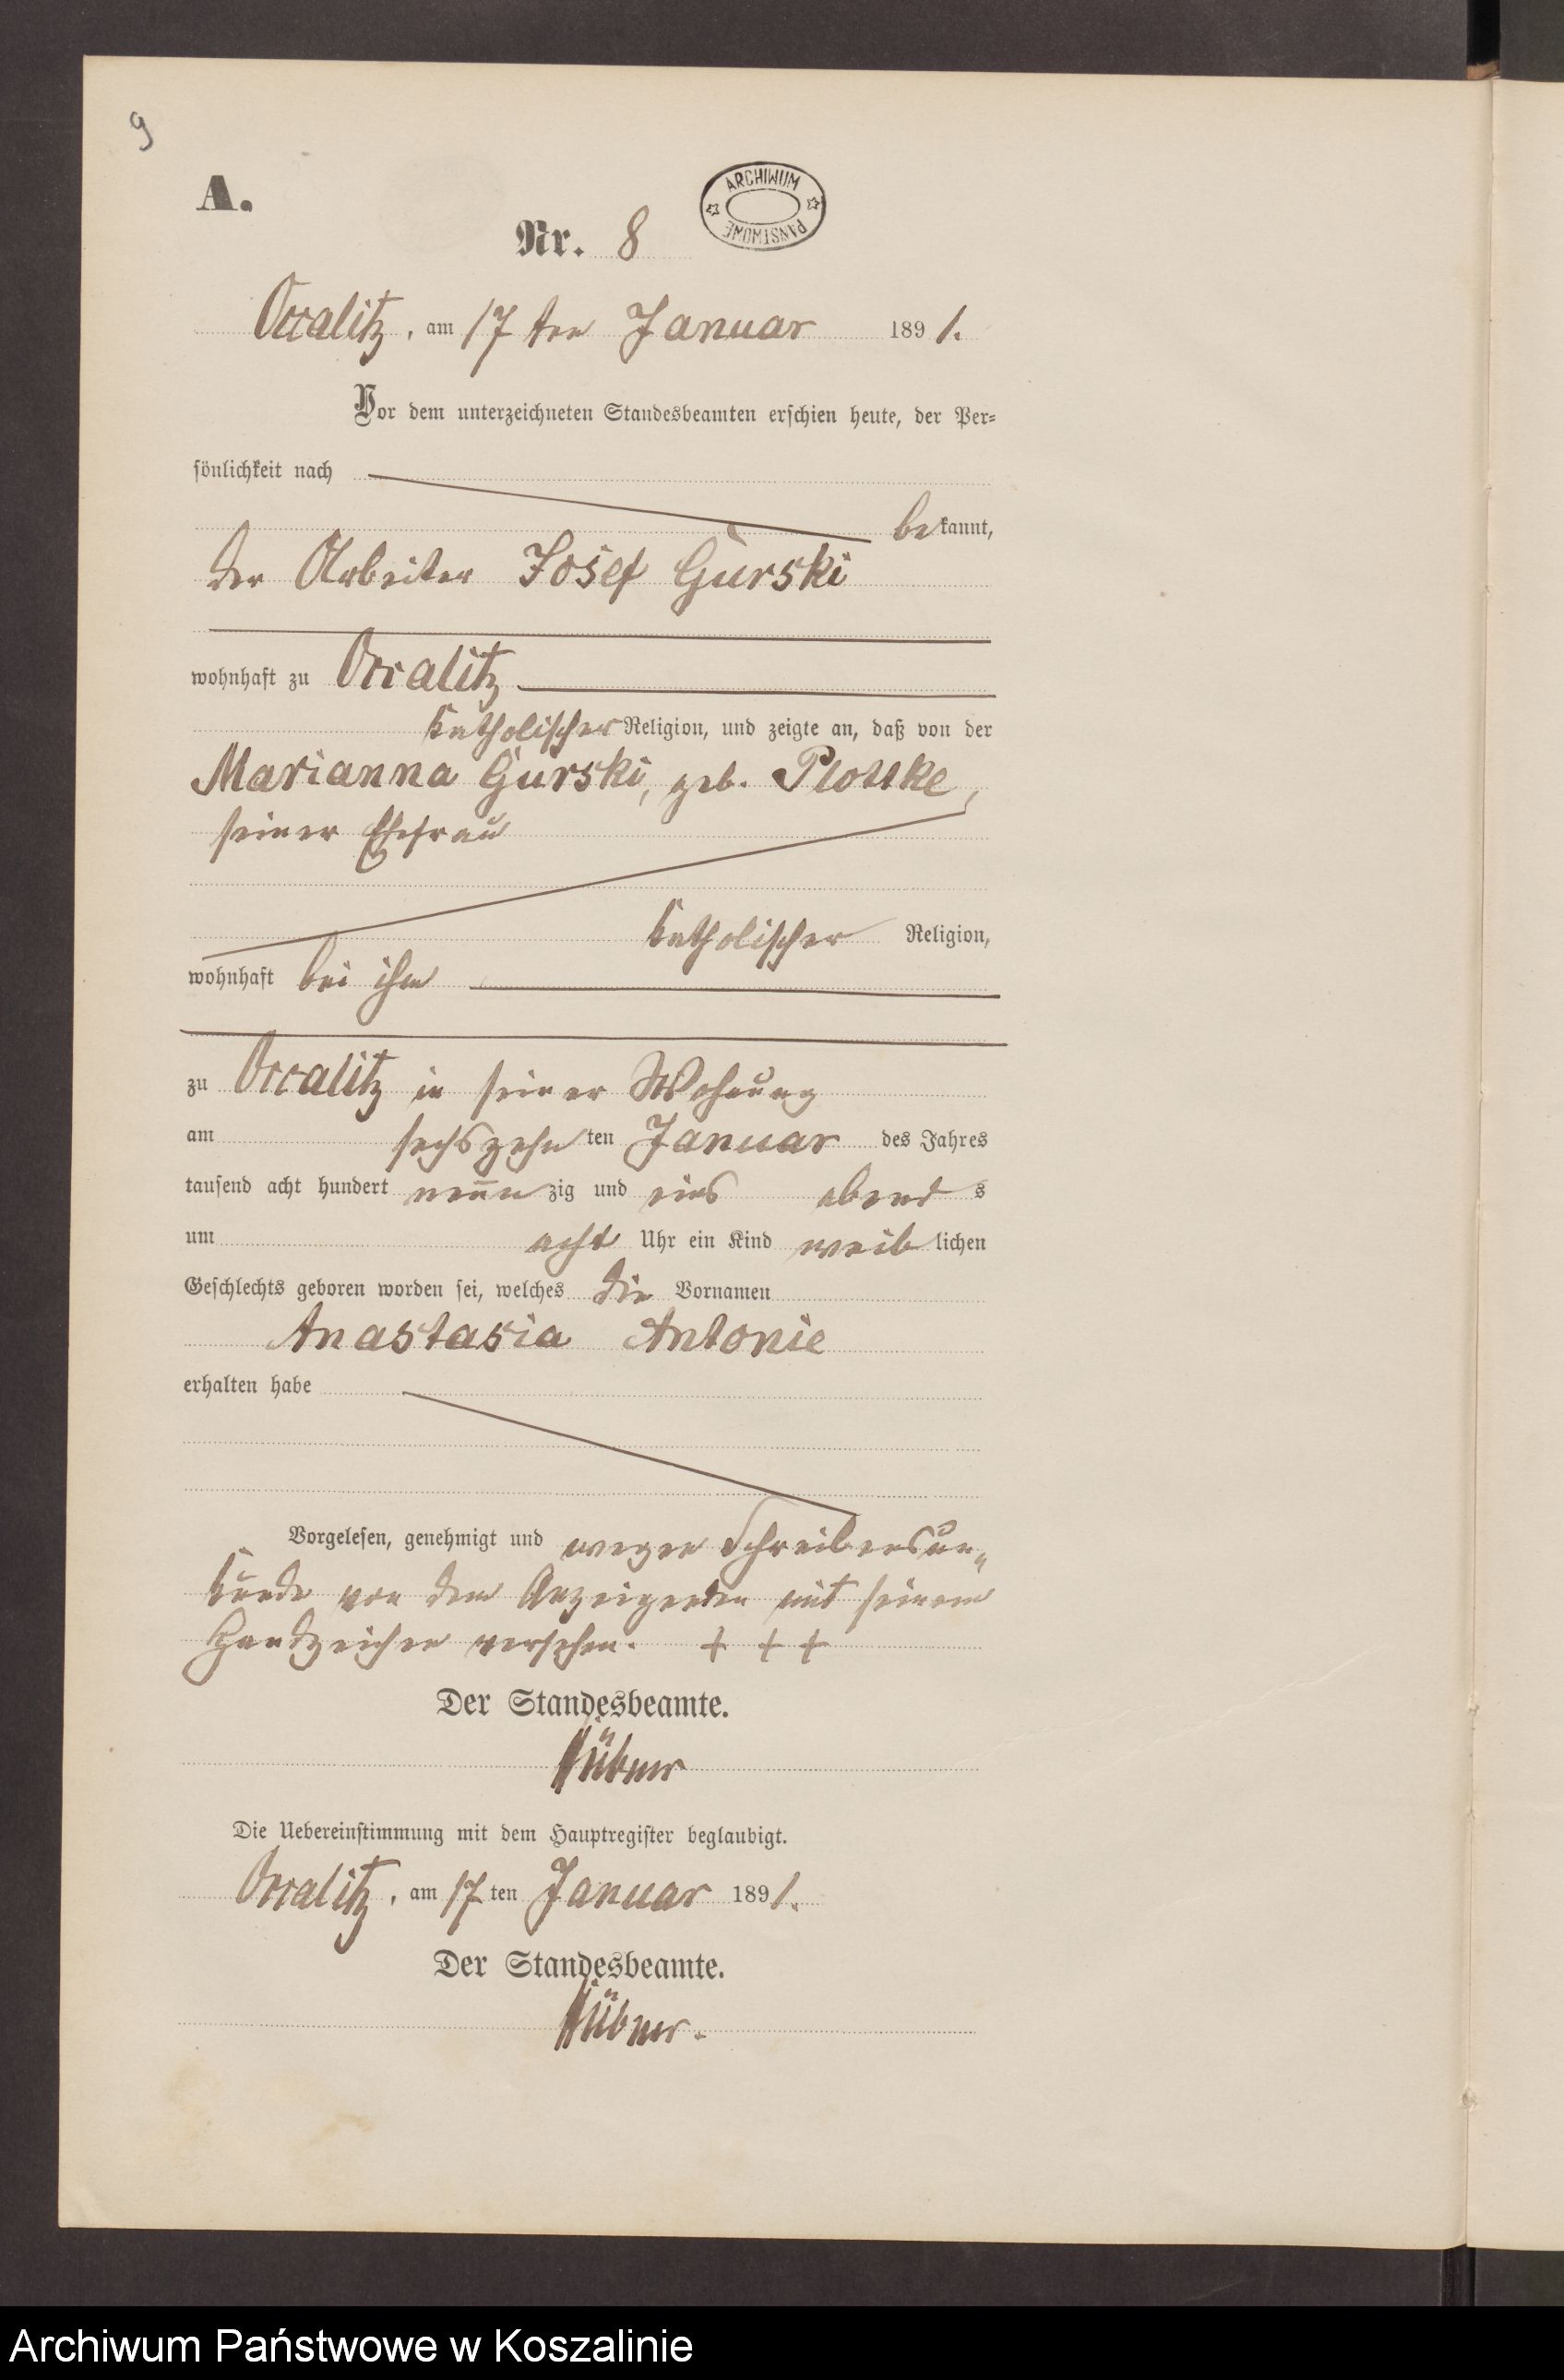 9
A.
ARCHIWUM PAŃSTWOWE
Nr. 8
Occalitz, am 17ten Januar 1891.
Vor dem unterzeichneten Standesbeamten erschien heute, der Per-
sönlichkeit nach
bekannt,
der Arbeiter Josef Gurski
wohnhaft zu Occalitz
katholischer Religion, und zeigte an, daß von der
Marianna Gurski, geb.
seiner Ehefrau
katholischer Religion,
wohnhaft bei ihm
zu Occalitz in seiner Wohnung
am sechszehnten Januar des Jahres
tausend acht hundert neunzig und eins abends
um acht Uhr ein Kind weiblichen
Geschlechts geboren worden sei, welches die Vornamen
Anastasia Antonie
erhalten habe
Vorgelesen, genehmigt und wegen Schreibensun-
kunde von dem Anzeigenden mit seinem
Handzeichen versehen. + + +
Der Standesbeamte.
Hübner
Die Uebereinstimmung mit dem Hauptregister beglaubigt.
Occalitz, am 17ten Januar 1891.
Der Standesbeamte.
Hübner.
Archiwum Państwowe w Koszalinie